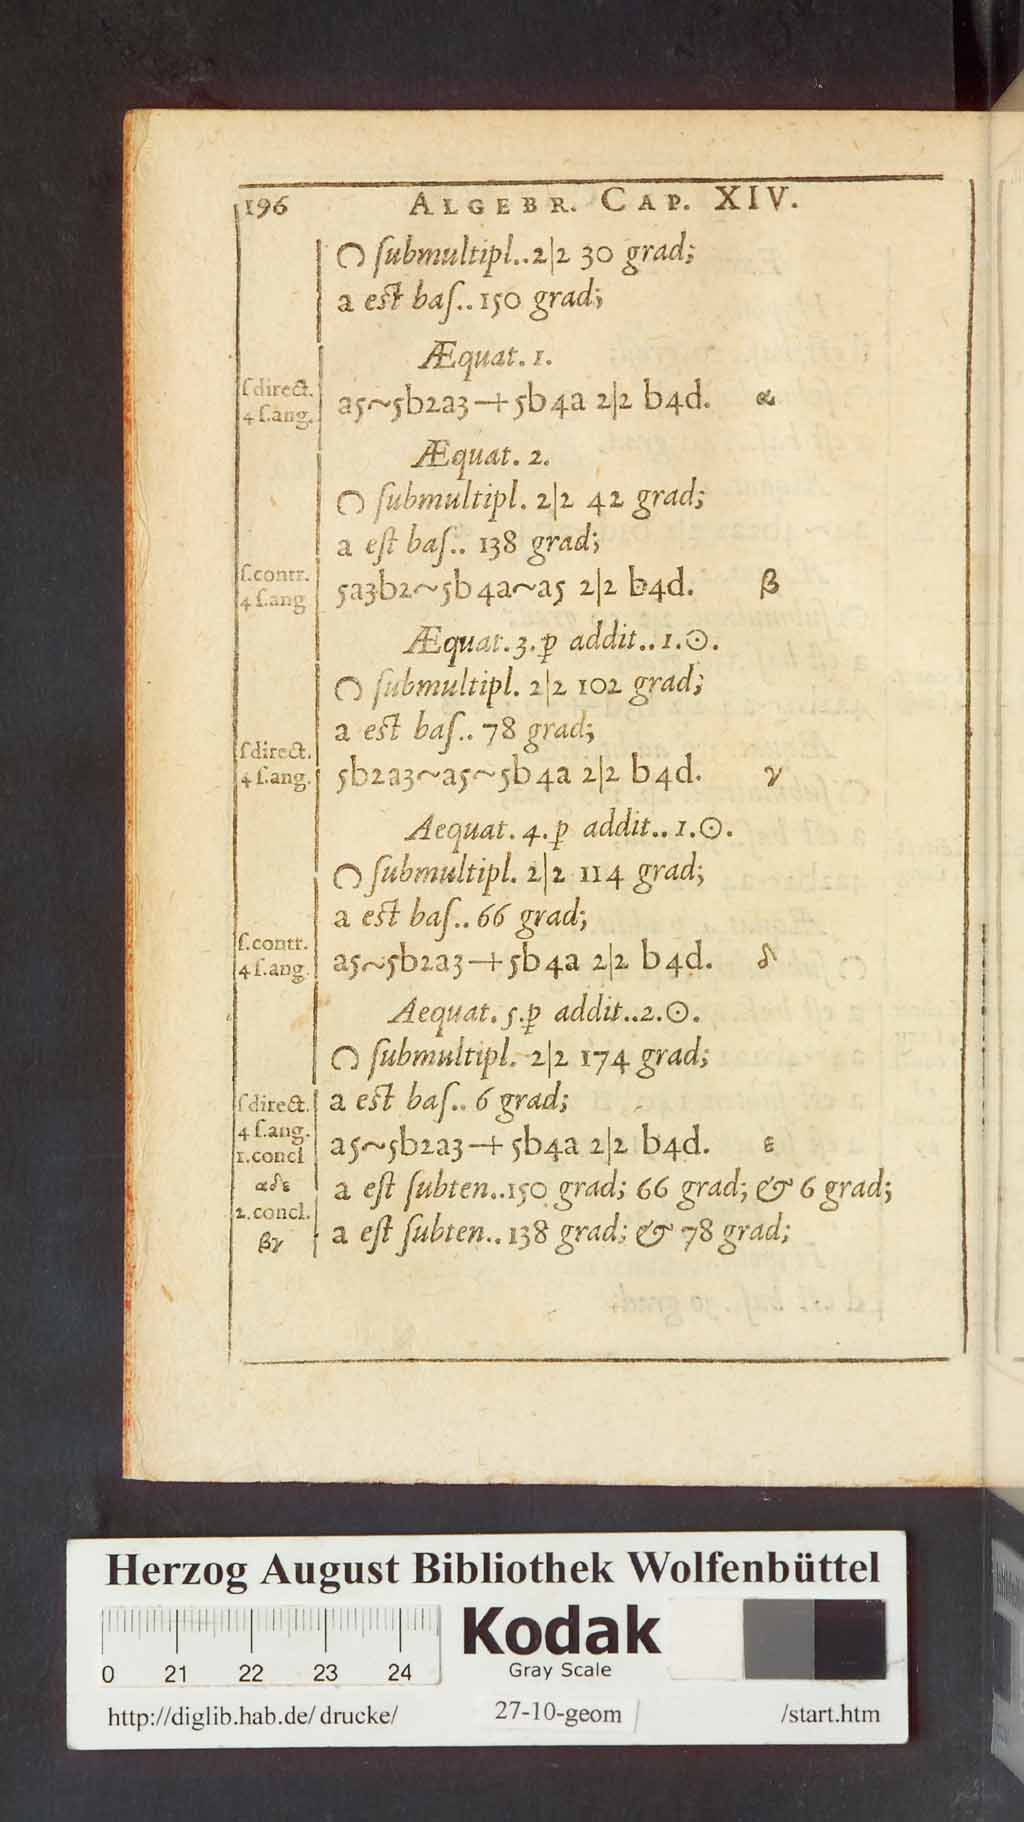 196 ALGEBR. CAP. XIV.
◠ ſubmultipl..2|2 30 grad;
a eſt baſ..150 grad;
Æquat. 1.
ſdirect.
4 ſ.ang.
a5~5b2a3+5b4a 2|2 b4d. α
Æquat. 2.
◠ ſubmultipl. 2|2 42 grad;
a eſt baſ.. 138 grad;
ſ.contr.
4 ſ.ang
5a3b2~5b4a~a5 2|2 b4d. β
Æquat.3.ꝑ addit..1.☉.
◠ ſubmultipl. 2|2 102 grad;
a eſt baſ.. 78 grad;
ſdirect.
4 ſ.ang.
5b2a3~a5~5b4a 2|2 b4d. γ
Aequat. 4.ꝑ addit..1.☉.
◠ ſubmultipl. 2|2 114 grad;
a eſt baſ.. 66 grad;
ſ.contr.
4 ſ.ang.
a5~5b2a3+5b4a 2|2 b4d. δ
Aequat. 5.ꝑ addit..2.☉.
◠ ſubmultipl. 2|2 174 grad;
ſdirect. a eſt baſ.. 6 grad;
4 ſ.ang.
a5~5b2a3+5b4a 2|2 b4d. ε
1.concl
αδε
a eſt ſubten..150 grad; 66 grad; & 6 grad;
2.concl.
βγ
a eſt ſubten..138 grad; & 78 grad;
Herzog August Bibliothek Wolfenbüttel
0 21 22 23 24
Kodak
Gray Scale
http://diglib.hab.de/drucke/ 27-10-geom /start.htm